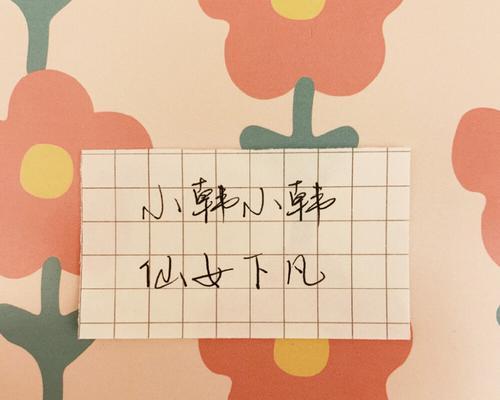 小韩小韩
仙女下凡